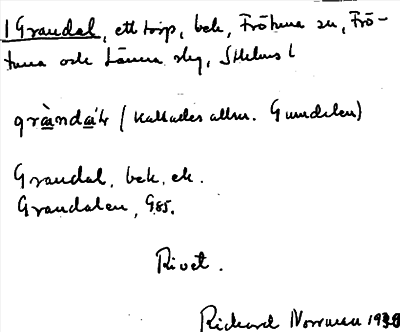 1 Grandal, ett torp, bek, Frötuna sn, Frö-
tuna och Länna skg, Sthlms l
gràndá'ḷr (kallades allm. Grundalen)
Grandal, bek. ek.
Grandalen, G85.
Rivet.
Richard Norrman 1938